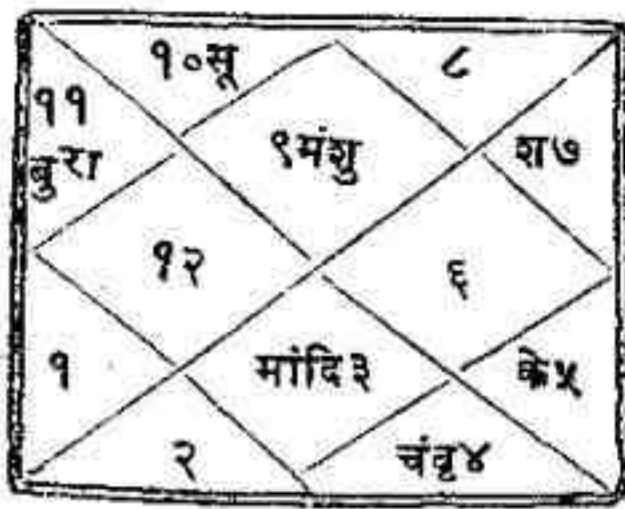 १०सू
८
११
बुरा
९मंशु
श७
१२
६
१
मांदि३
के५
२
चंवृ४